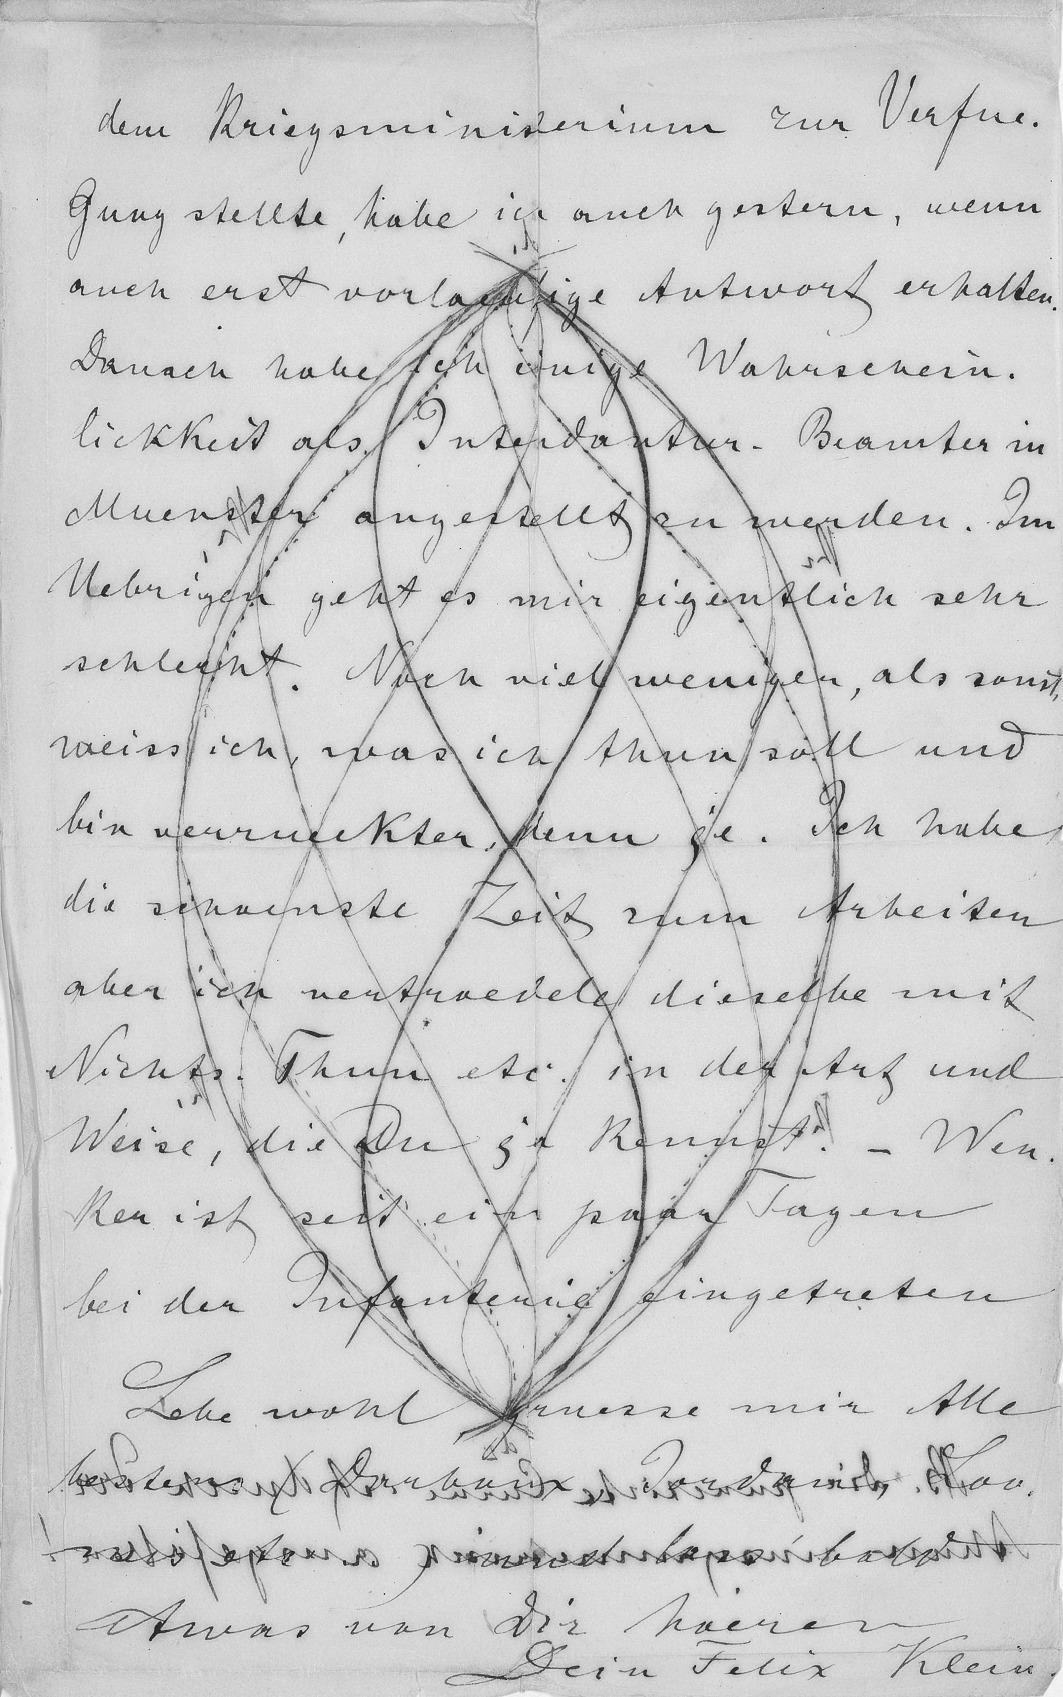 dem Kriegsministerium zur Verfue-
gung stellte, habe ich auch gestern, wenn
auch erst vorlaeufige Antwort erhalten.
Danach habe ich einige Wahrschein-
lichkeit als Intendantur-Beamter in
Muenster angestellt zu werden. Im
Uebrigen geht es mir eigentlich sehr
schlecht. Noch viel weniger, als sonst,
weiss ich, was ich thun soll und
bin verrueckter, denn je. Ich habe
die schoenste Zeit zum Arbeiten
aber ich vertroedele dieselbe mit
Nichts-Thun etc. in der Art und
Weise, die Du ja kennst. – Wen-
ker ist seit ein paar Tagen
bei der Infanterie eingetreten
Lebe wohl gruesse mir Alle
bestens, Darboux Jordan,
etc und lass bald
etwas von Dir hoeren
Dein Felix Klein.